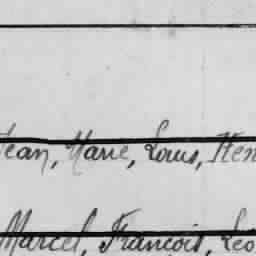 Jean, Marie, Louis, Hen
Marcel, François, Léo